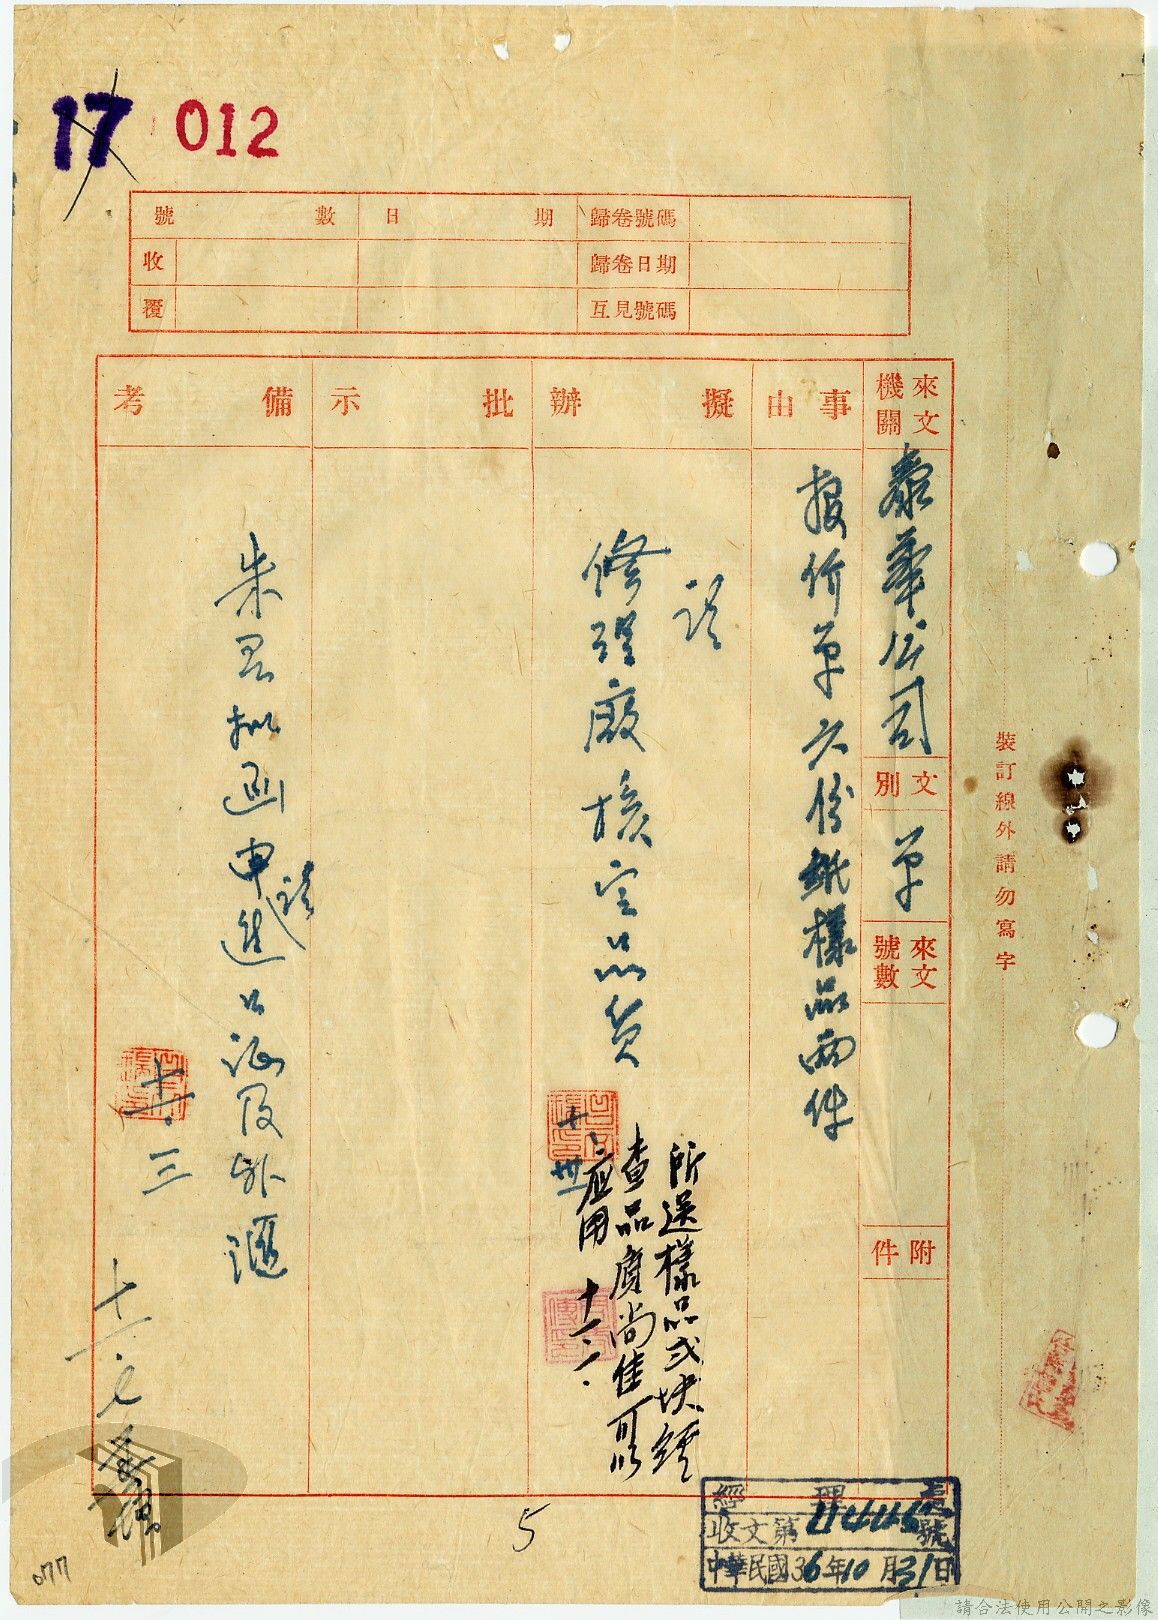 17 012
號數 日期 歸卷號碼
收 歸卷日期
覆 互見號碼
來文機關
泰華公司
文別
單
來文號數
附件
事由
报价單六份紙樣品兩件
擬辦
請
修理廠核定品質
十、卅一
所送樣品弍块經
查品质尚佳可以
应用 十一、一、
批示
備考
請
十一.三
十一.七
裝訂線外請勿寫字
經理處
收文第 號
中華民國36年10月31日
5
077
請合法使用公開之影像